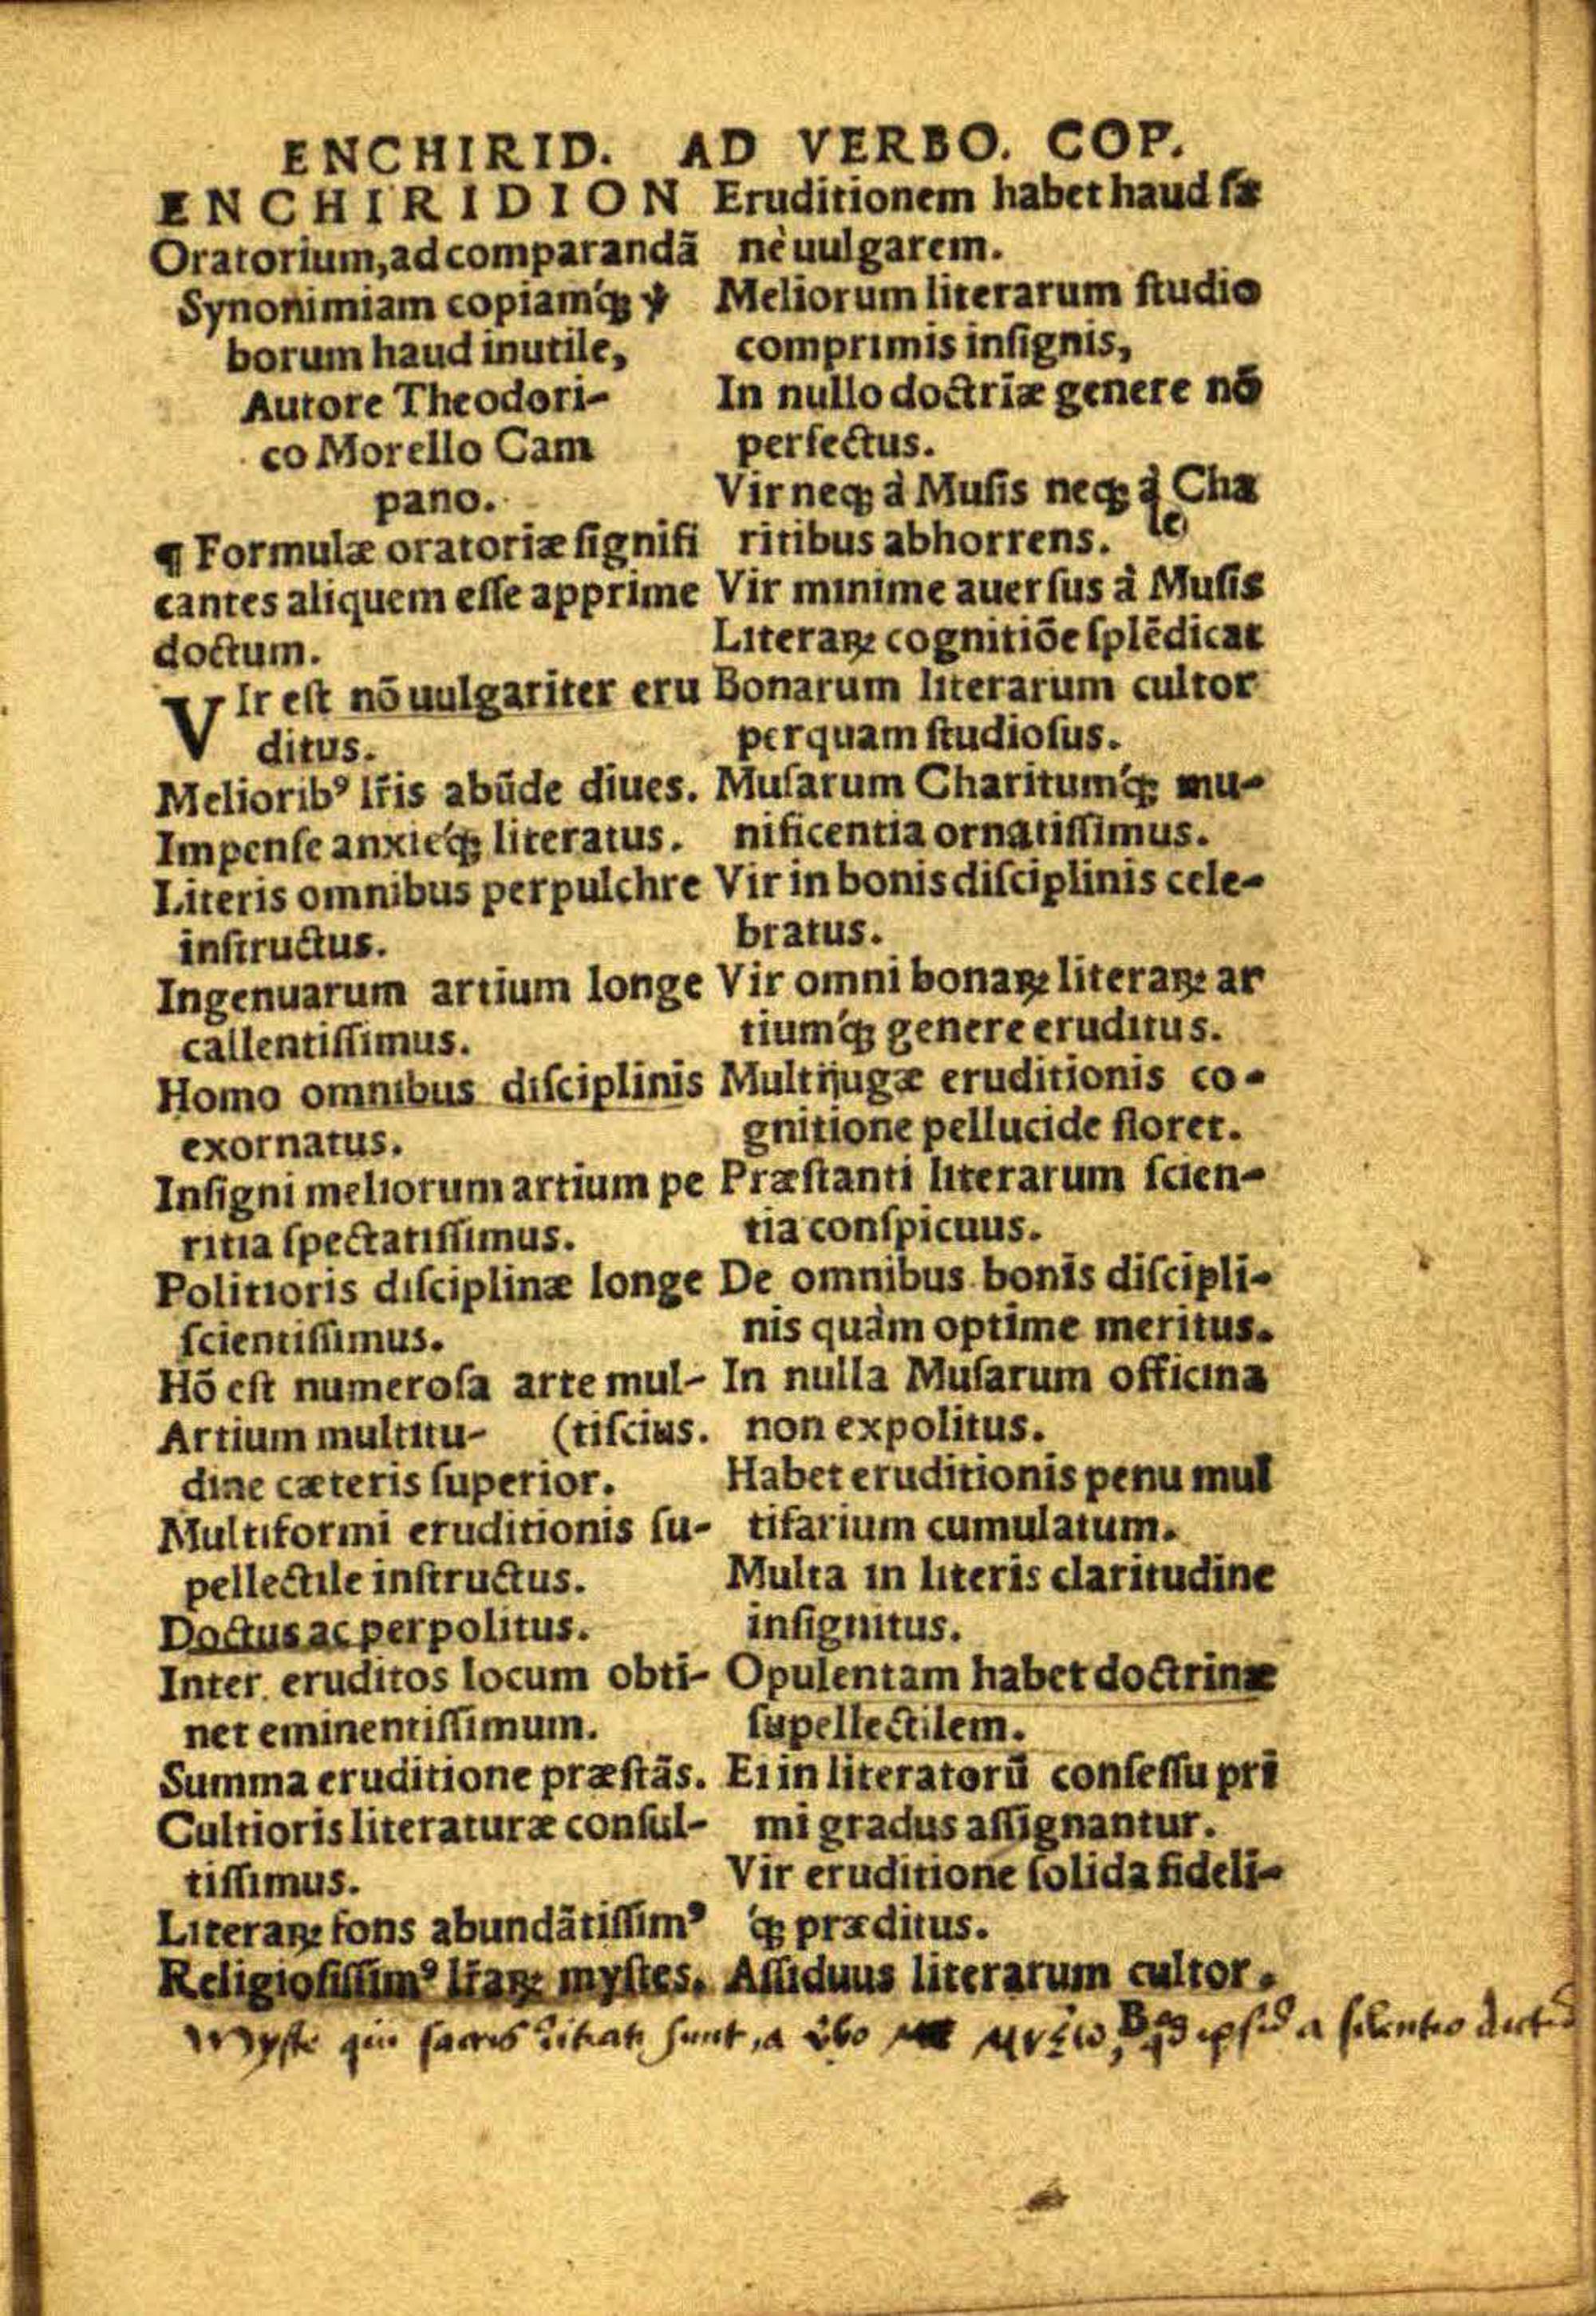 ENCHIRID. AD VERBO. COP.
ENCHIRIDION
Oratorium, ad comparandā
Synonimiam copiamq́ꝫ ꝟ
borum haud inutile,
Autore Theodori-
co Morello Cam
pano.
¶ Formulæ oratoriæ ſignifi
cantes aliquem eſſe apprime
doctum.
VIr eſt nō uulgariter eru
ditus.
Meliorib⁹ lr̄is abūde diues.
Impenſe anxieq́ꝫ literatus.
Literis omnibus perpulchre
inſtructus.
Ingenuarum artium longe
callentiſſimus.
Homo omnibus diſciplinis
exornatus.
Inſigni meliorum artium pe
ritia ſpectatiſſimus.
Politioris diſciplinæ longe
ſcientiſſimus.
Hō eſt numeroſa arte mul-
Artium multitu- (tiſcius.
dine cæteris ſuperior.
Multiformi eruditionis ſu-
pellectile inſtructus.
Doctus ac perpolitus.
Inter eruditos locum obti-
net eminentiſſimum.
Summa eruditione præſtãs.
Cultioris literaturæ conſul-
tiſſimus.
Literaꝝ fons abundãtiſſim⁹
Religioſiſſim⁹ lr̄aꝝ myſtes.
Eruditionem habet haud ſa
nè uulgarem.
Meliorum literarum ſtudio
comprimis inſignis,
In nullo doctrīæ genere nō
perfectus.
Vir neqꝫ à Muſis neqꝫ à Cha
le
ritibus abhorrens.
Vir minime auerſus à Muſis
Literaꝝ cognitiōe ſplēdicat
Bonarum literarum cultor
perquam ſtudioſus.
Muſarum Charitumq́ꝫ mu-
nificentia ornatiſſimus.
Vir in bonis diſciplinis cele-
bratus.
Vir omni bonaꝝ literaꝝ ar
tiumq́ꝫ genere eruditus.
Multijugæ eruditionis co-
gnitione pellucide floret.
Præſtanti literarum ſcien-
tia conſpicuus.
De omnibus bonis diſcipli-
nis quàm optime meritus.
In nulla Muſarum officina
non expolitus.
Habet eruditionis penu mul
tifarium cumulatum.
Multa in literis claritudine
inſignitus.
Opulentam habet doctrinæ
ſupellectilem.
Ei in literatorũ conſeſſu pri
mi gradus aſſignantur.
Vir eruditione ſolida fideli-
q́ꝫ præditus.
Aſſiduus literarum cultor.
Myſte qui ſacris ſunt, a a ſilentio